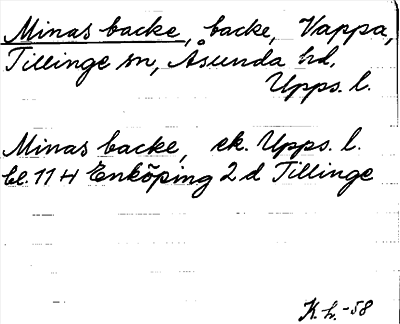 Minas backe, backe, Vappa,
Tillinge sn, Åsunda hd,
Upps. l.
Minas backe, ek. Upps. l.
bl. 11 H Enköping 2 d Tillinge
K. h. -58